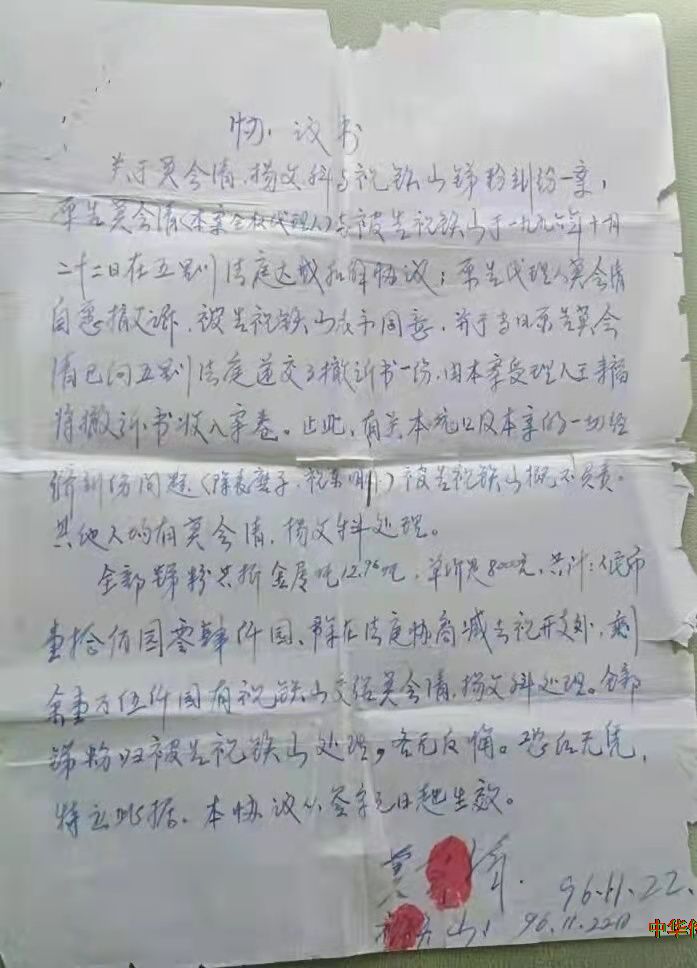 协议书
关于莫会清、杨文科与祝铁山锑粉纠纷一案，
原告莫会清(本案全权代理人)与被告祝铁山于一九九六年十一月
二十二日在五则法庭达成和解协议；原告代理人莫会清
自愿撤诉，被告祝铁山表示同意，并于当日原告莫会
清已向五则法庭递交了撤诉书一份，由本案受理人王来福
将撤诉书收入宗卷。止此，有关本坑口及本案的一切经
济纠纷问题（除 祝 ）被告祝铁山概不负责。
其他人均有莫会清、杨文科处理。
全部锑粉共折金属吨12.96吨，单价是8000元，共计：人民币
壹拾 零肆仟园、 在法庭协商 去祝开支外，剩
余壹万伍仟园有祝铁山交给莫会清、杨文科处理。全部
锑粉归被告祝铁山处理，各无反悔。恐后无凭，
特立此据。本协议从签字之日起生效。
莫 清. 96.11.22.
山 96.11.22日
中华